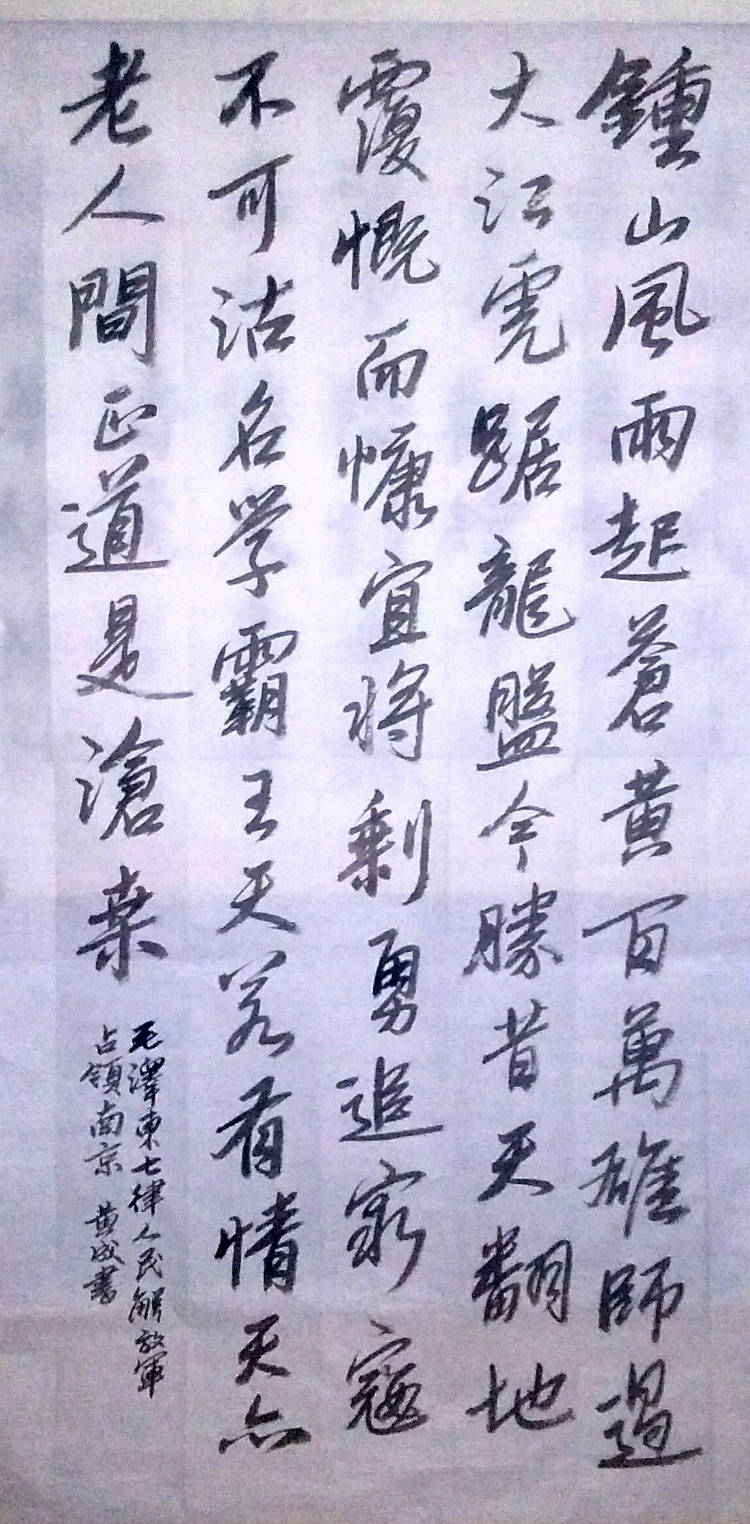 鍾山風雨起蒼黄百萬雄師過
大江虎踞龍盤今勝昔天翻地
覆慨而慷宜将剩勇追窮寇
不可沽名学霸王天若有情天亦
老人間正道是滄桑
毛澤東七律人民解放軍
占領南京 黄成書